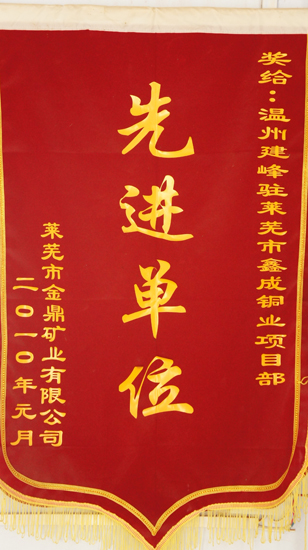 奖给：温州建峰驻莱芜市鑫成铜业项目部
先进单位
莱芜市金鼎矿业有限公司
二〇一〇年元月